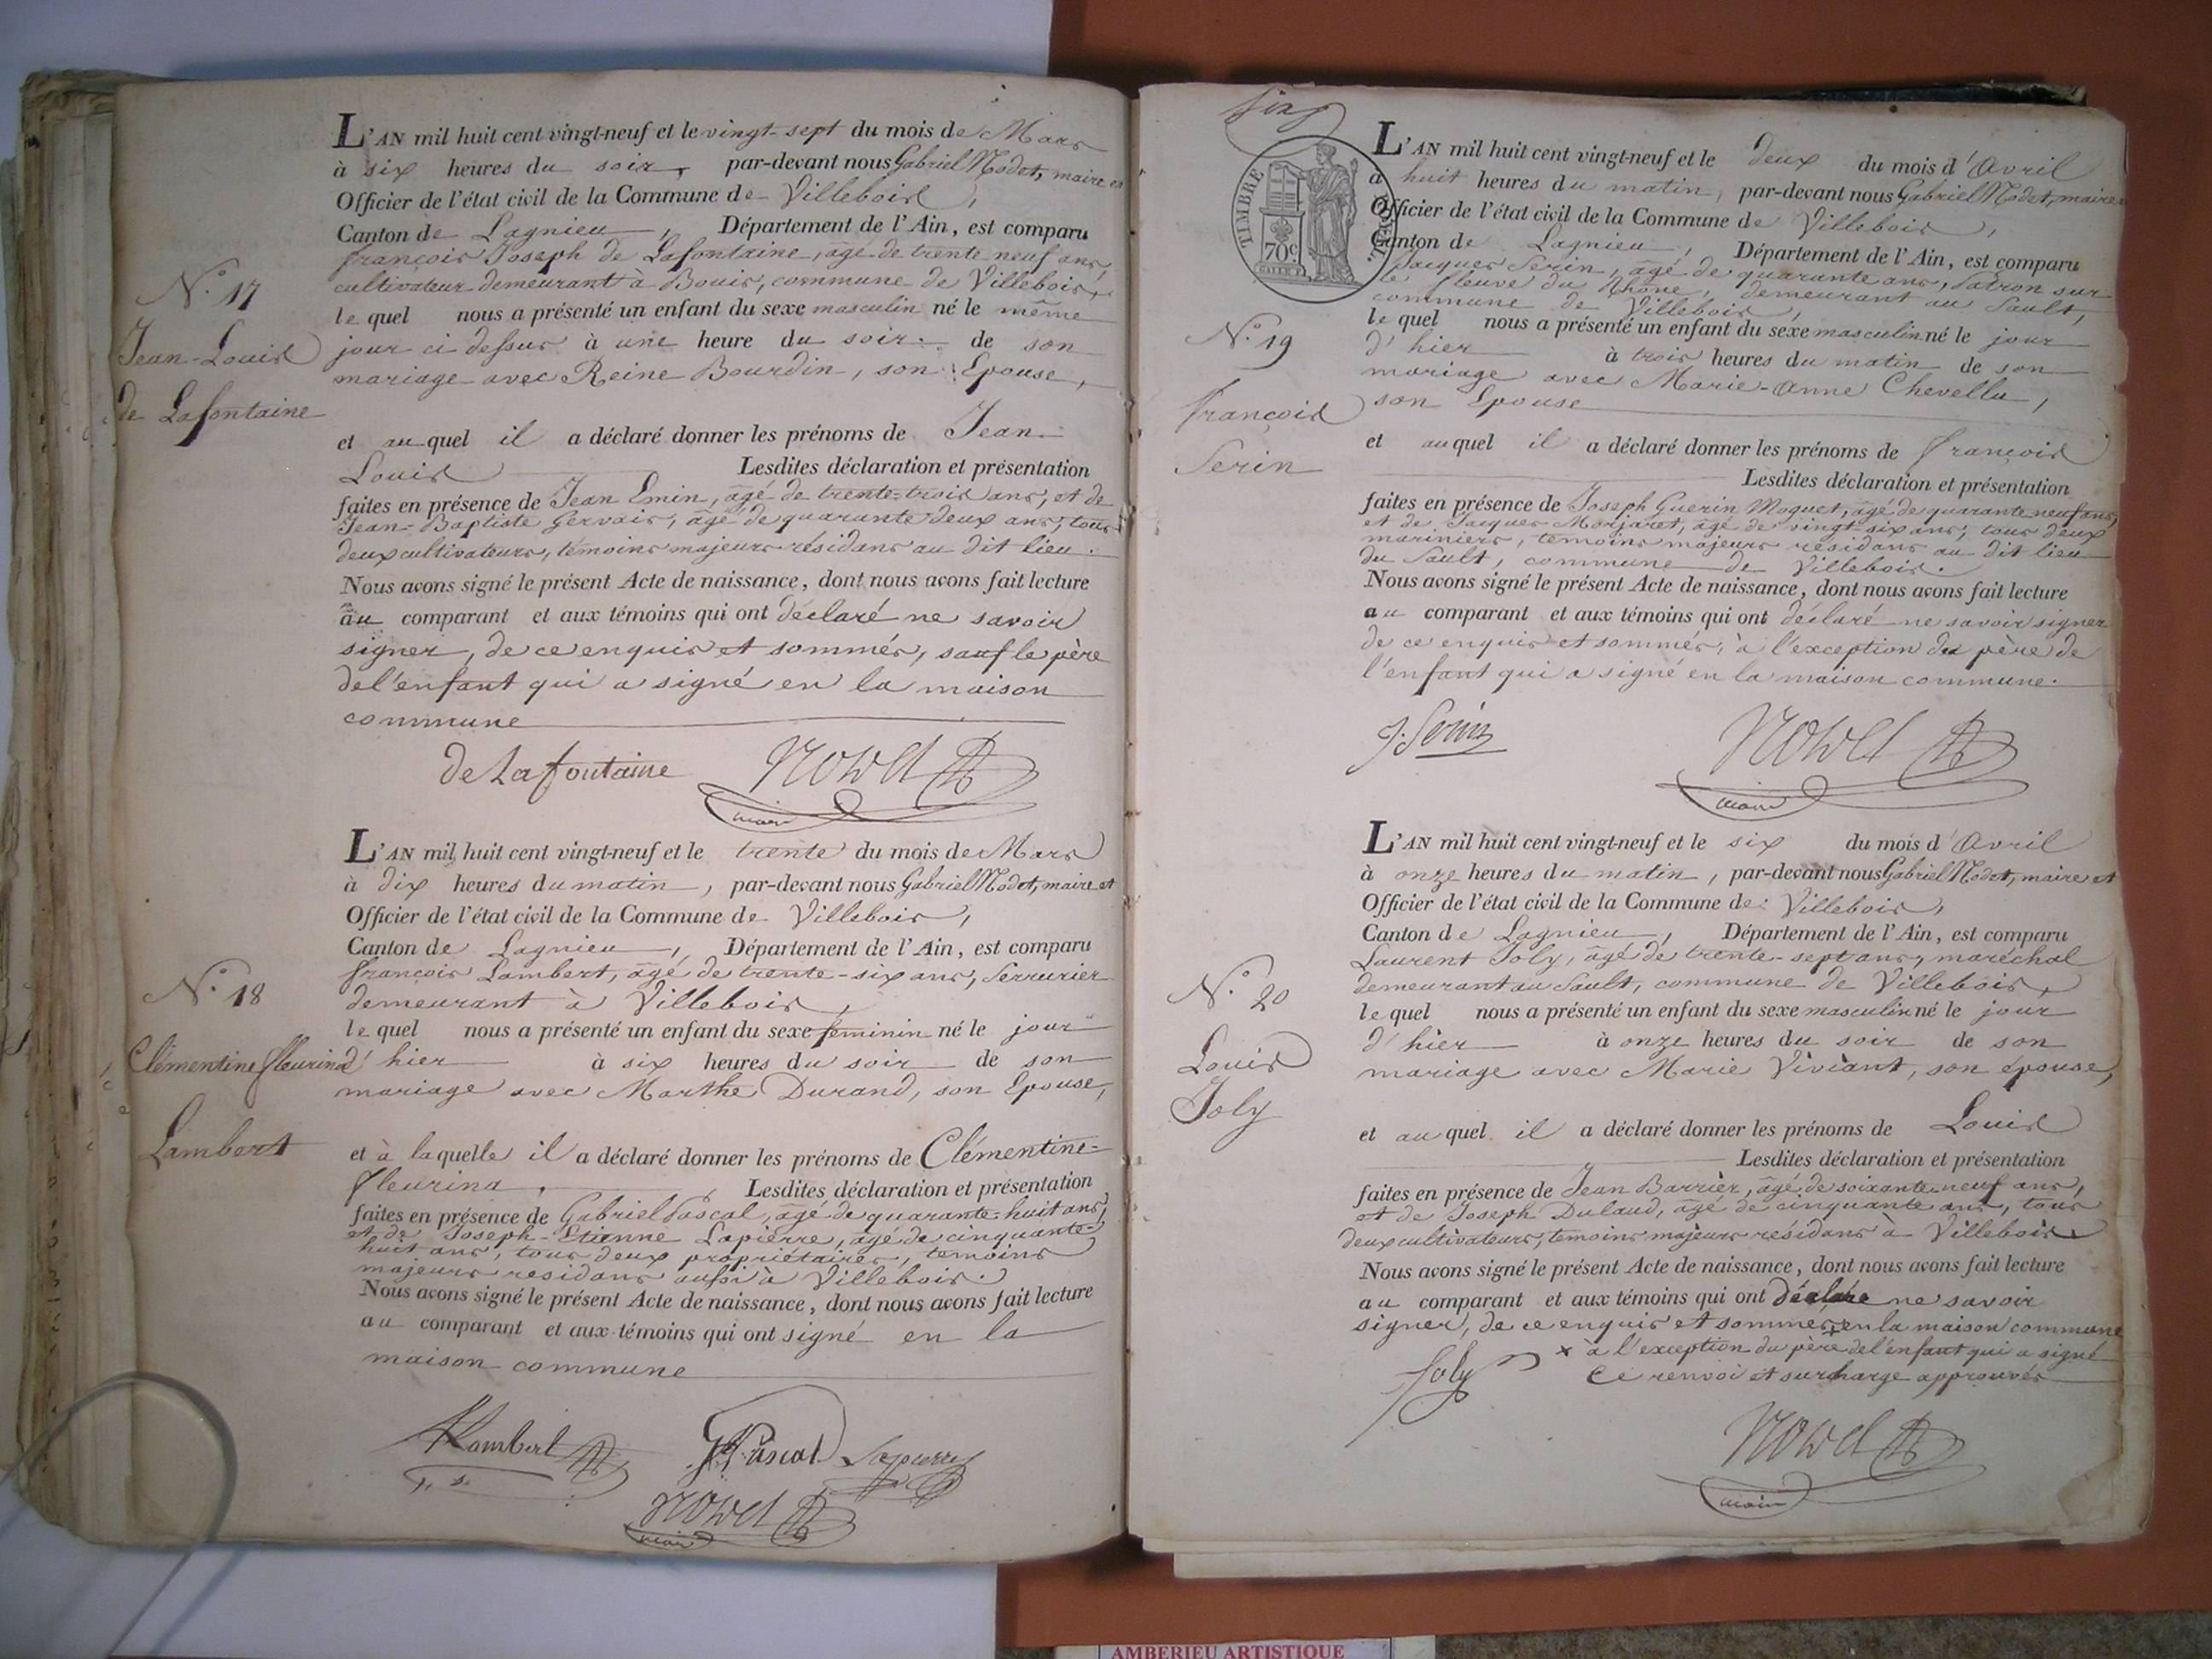 L'AN mil huit cent vingt-neuf et le vingt-sept du mois de Mars
à six heures du soir, par-devant nous Gabriel Nodet, maire et
Officier de l'état civil de la Commune de Villebois,
Canton de Lagnieu, Département de l'Ain, est comparu
françois Joseph de Lafontaine, âgé de trente neuf ans,
cultivateur demeurant à Bouis, commune de Villebois,
le quel nous a présenté un enfant du sexe masculin né le même
N.° 17
Jean-Louis
de Lafontaine
jour ci dessus à une heure du soir de son
mariage avec Reine Bourdin, son Epouse,
et au quel il a déclaré donner les prénoms de Jean
Louis Lesdites déclaration et présentation
faites en présence de Jean Emin, âgé de trente-trois ans, et de
Jean-Baptiste Gervais, âgé de quarante deux ans, tous
deux cultivateurs, témoins majeurs résidans au dit lieu.
Nous avons signé le présent Acte de naissance, dont nous avons fait lecture
au comparant et aux témoins qui ont déclaré ne savoir
signer, de ce enquis et sommés, sauf le père
de l'enfant qui a signé en la maison
commune
de Lafontaine
maire
L'AN mil huit cent vingt-neuf et le trente du mois de Mars
à dix heures du matin, par-devant nous Gabriel Nodet, maire et
Officier de l'état civil de la Commune de Villebois,
Canton de Lagnieu, Département de l'Ain, est comparu
françois Lambert, âgé de trente-six ans, Serrurier
demeurant à Villebois
N.° 18
Clémentine fleurina
Lambert
le quel nous a présenté un enfant du sexe féminin né le jour
d'hier à six heures du soir de son
mariage avec Marthe Durand, son Epouse,
et à la quelle il a déclaré donner les prénoms de Clémentine-
fleurina. Lesdites déclaration et présentation
faites en présence de Gabriel Pascal, âgé de quarante-huit ans,
et de Joseph-Etienne Lapierre, âgé de cinquante-
huit ans, tous deux propriétaires, témoins
majeurs residans aussi à Villebois.
Nous avons signé le présent Acte de naissance, dont nous avons fait lecture
au comparant et aux témoins qui ont signé en la
maison commune
Lambert Pascal Lapierre
maire
TIMBRE ROYAL.
70c
L'AN mil huit cent vingt-neuf et le deux du mois d'Avril
à huit heures du matin, par-devant nous Gabriel Nodet, maire
Officier de l'état civil de la Commune de Villebois,
Canton de Lagnieu, Département de l'Ain, est comparu
Jacques Serin, âgé de quarante ans, Patron sur
le fleuve du Rhône, demeurant au Sault,
commune de Villebois,
N.° 19
françois
Serin
le quel nous a présenté un enfant du sexe masculin né le jour
d'hier à trois heures du matin de son
mariage avec Marie-Anne Chevellu,
son Epouse
et au quel il a déclaré donner les prénoms de françois
Lesdites déclaration et présentation
faites en présence de Joseph Guerin Moquet, âgé de quarante-neuf ans,
et de Jacques Morjaret, âgé de vingt six ans, tous deux
mariniers, témoins majeurs résidans au dit lieu
du Sault, commune de Villebois.
Nous avons signé le présent Acte de naissance, dont nous avons fait lecture
au comparant et aux témoins qui ont déclaré ne savoir signer
de ce enquis et sommés, à l'exception du père de
l'enfant qui a signé en la maison commune.
J. Serin
maire
L'AN mil huit cent vingt-neuf et le six du mois d'Avril
à onze heures du matin, par-devant nous Gabriel Nodet, maire et
Officier de l'état civil de la Commune de Villebois,
Canton de Lagnieu, Département de l'Ain, est comparu
Laurent Joly, âgé de trente-sept ans, maréchal
demeurant au Sault, commune de Villebois,
N.° 20
Louis
Joly
le quel nous a présenté un enfant du sexe masculin né le jour
d'hier à onze heures du soir de son
mariage avec Marie Viviant, son épouse,
et au quel il a déclaré donner les prénoms de Louis
Lesdites déclaration et présentation
faites en présence de Jean Barrier, âgé de soixante-neuf ans,
et de Joseph Dulaud, âgé de cinquante ans, tous
deux cultivateurs, temoins majeurs residans à Villebois
Nous avons signé le présent Acte de naissance, dont nous avons fait lecture
au comparant et aux témoins qui ont déclaré ne savoir
signer, de ce enquis et sommés, x en la maison commune
x à l'exception du père de l'enfant qui a signé
Ce renvoi et surcharge approuvés
Joly
maire
AMBERIEU ARTISTIQUE